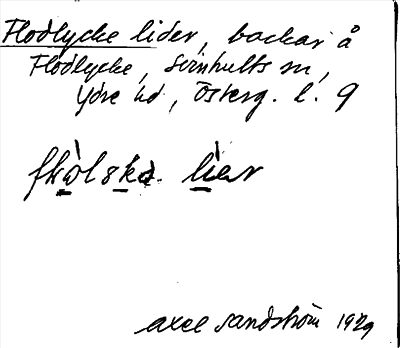 Flodlycke lider, backar å
Flodlycke, Svinhults sn,
Ydre hd, Österg. l. 9
lier
Axel Sandström 1929